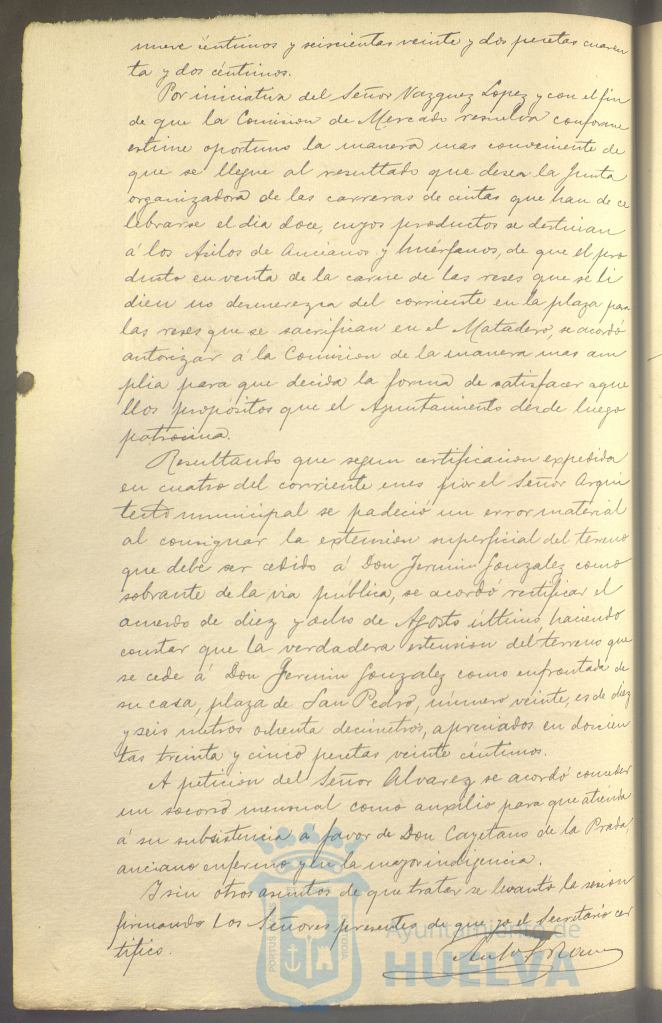 nueve céntimos y seiscientas veinte y dos pesetas cuaren
ta y dos céntimos.
Por iniciativa del Señor Vazquez Lopez y con el fin
de que la Comision de Mercado resuelva conforme
estime oportuno la manera mas conveniente de
que se llegue al resultado que desea la Junta
organizadora de las carreras de cintas que han de ce
lebrarse el dia doce, cuyos productos se destinan
á los Asilos de Ancianos y huérfanos, de que el pro
ducto en venta de la carne de las reses que se li
dien no desmerezca del corriente en la plaza para
las reses que se sacrifican en el Matadero, se acordó
autorizar á la Comision de la manera mas am
plia para que decida la forma de satisfacer aque
llos propósitos que el Ayuntamiento desde luego
patrocina.
Resultando que segun certificacion expedida
en cuatro del corriente mes por el Señor Arqui
tecto municipal se padeció un error material
al consignar la extension superficial del terreno
que debe ser cedido á Don Fermin Gonzalez como
sobrante de la via pública, se acordó rectificar el
acuerdo de diez y ocho de Agosto último, haciendo
constar que la verdadera extension del terreno que
se cede á Don Fermin Gonzalez como enfrontada de
su casa, plaza de San Pedro, número veinte, es de diez
y seis metros ochenta decímetros, apreciados en doscien
tas treinta y cinco pesetas veinte céntimos.
A peticion del Señor Alvarez se acordó conceder
un socorro mensual como auxilio para que atienda
á su subsistencia a favor de Don Cayetano de la Prada,
anciano enfermo y en la mayor indigencia.
Y sin otros asuntos de que tratar se levantó la sesion
firmando los Señores presentes de que yo el Secretario cer
tifico.
Ayuntamiento de
HUELVA